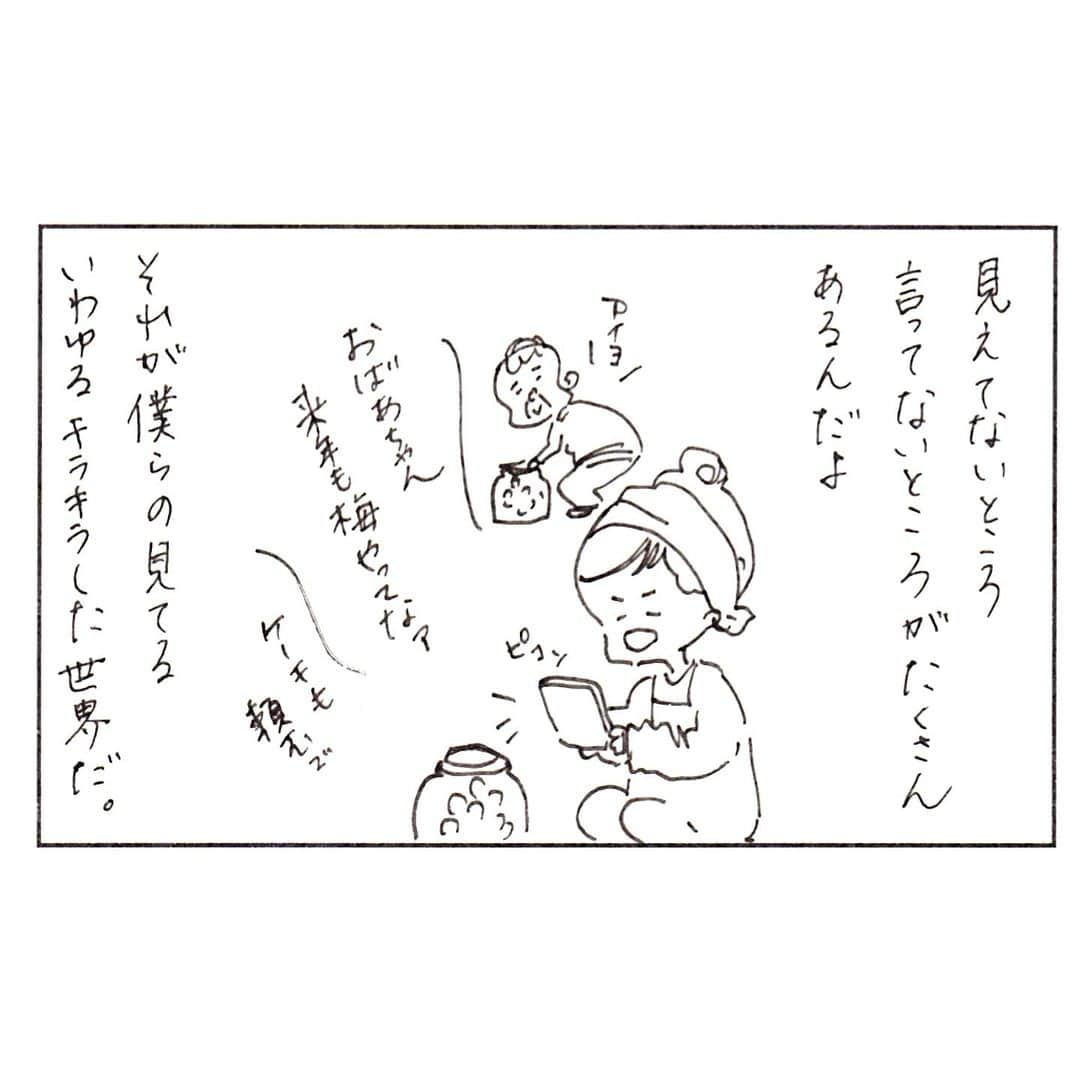 見えてないところ
言ってないところがたくさん
あるんだよ
アイヨー
おばあちゃん
来年も梅やってなァ
ピコン
ケーキも
頼むで
それが僕らの見てる
いわゆるキラキラした世界だ。